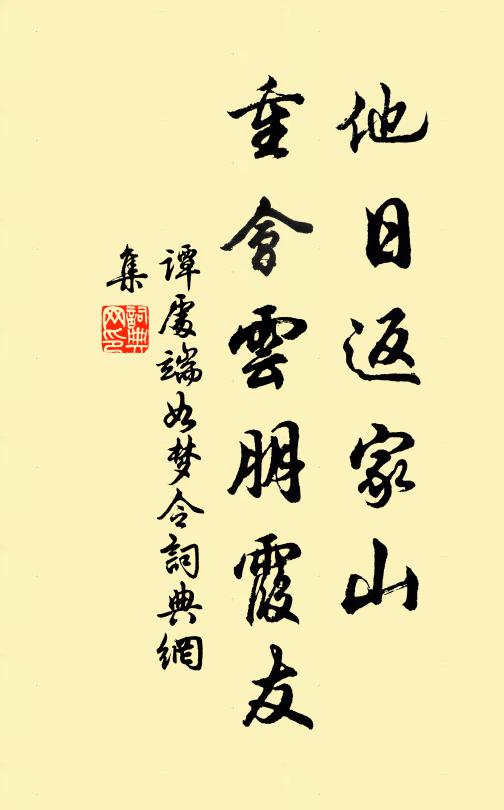 他日返家山
重會雲朋霞友
譚處端如梦令詞典網
集
詞典网印